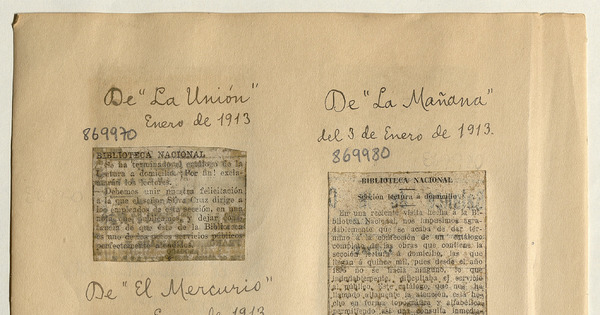 De "La Unión"
Enero de 1913
869970
BIBLIOTECA NACIONAL
Se ha terminado el catálogo de la
Lectura a domicilio. ¡Por fin! excla-
marán los lectores.
Debemos unir nuestra felicitación
a la que el señor Cruz dirige a
los empleados de esta sección, en una
nota de publicamos, y dejar cons-
tancia de que ésta de la Biblioteca
es uno de los pocos servicios públicos
correctamente atendidos.
De "El Mercurio"
Enero de 1913
De "La Mañana"
del 3 de Enero de 1913.
869980
BIBLIOTECA NACIONAL
Sección lectura a domicilio
En una reciente visita hecha a la Bi-
blioteca Nacional, nos impusimos agra-
dablemente que se acaba de dar tér-
mino a la confección de un catálogo
completo de las obras que contiene la
sección lectura á domicilio, las que
llegan á quince mil, pues desde el año
no se hacía ninguno, lo que
indudablemente, dificultaba el servicio
al público. Este catálogo, que nos ha
llamado altamente la atención, está he-
cho en forma topográfica y alfabética
permitiendo así una consulta inmedia-